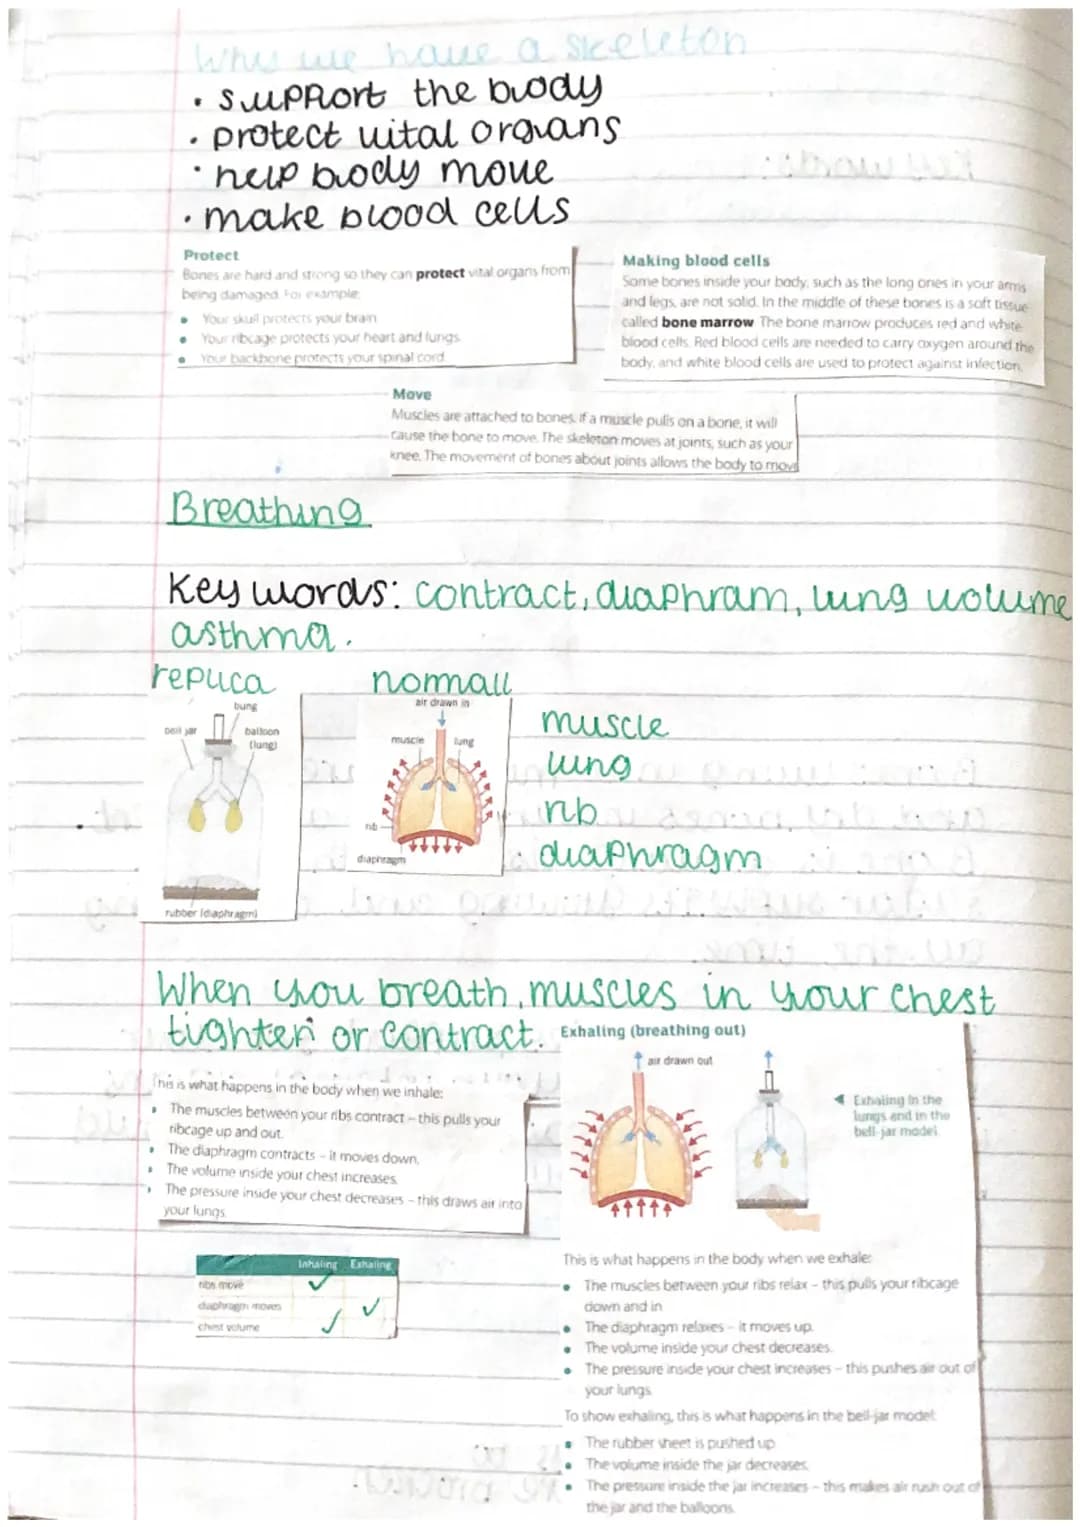 Why we have a skeleton
• support the body
• protect vital organs
• help body move
• make blood cells
Protect
Bones are hard and strong so they can protect vital organs from
being damaged. For example:
• Your skull protects your brain
• Your ribcage protects your heart and lungs.
• Your backbone protects your spinal cord
Making blood cells
Some bones inside your body, such as the long ones in your arms
and legs, are not solid. In the middle of these bones is a soft tissue
called bone marrow. The bone marrow produces red and white
blood cells. Red blood cells are needed to carry oxygen around the
body, and white blood cells are used to protect against infection.
Move
Muscles are attached to bones. If a muscle pulls on a bone, it will
cause the bone to move. The skeleton moves at joints, such as your
knee. The movement of bones about joints allows the body to move
Breathing
Key words: contract, diaphram, lung volume
asthma.
replica
normall
bung
bell jar
balloon
(lung)
rubber (diaphragm)
air drawn in
muscle
lung
rib
diaphragm
muscle
lung
rib
diaphragm
When you breath, muscles in your chest
tighten or contract.
This is what happens in the body when we inhale:
• The muscles between your ribs contract – this pulls your
ribcage up and out.
• The diaphragm contracts – it moves down.
• The volume inside your chest increases.
• The pressure inside your chest decreases – this draws air into
your lungs.
Inhaling Exhaling
ribs move ✓
diaphragm moves ✓
chest volume ✓
Exhaling (breathing out)
air drawn out
◄ Exhaling in the
lungs and in the
bell-jar model
This is what happens in the body when we exhale:
• The muscles between your ribs relax – this pulls your ribcage
down and in
• The diaphragm relaxes – it moves up.
• The volume inside your chest decreases.
• The pressure inside your chest increases – this pushes air out of
your lungs
To show exhaling, this is what happens in the bell-jar model:
• The rubber sheet is pushed up
• The volume inside the jar decreases.
• The pressure inside the jar increases – this makes air rush out of
the jar and the balloons.